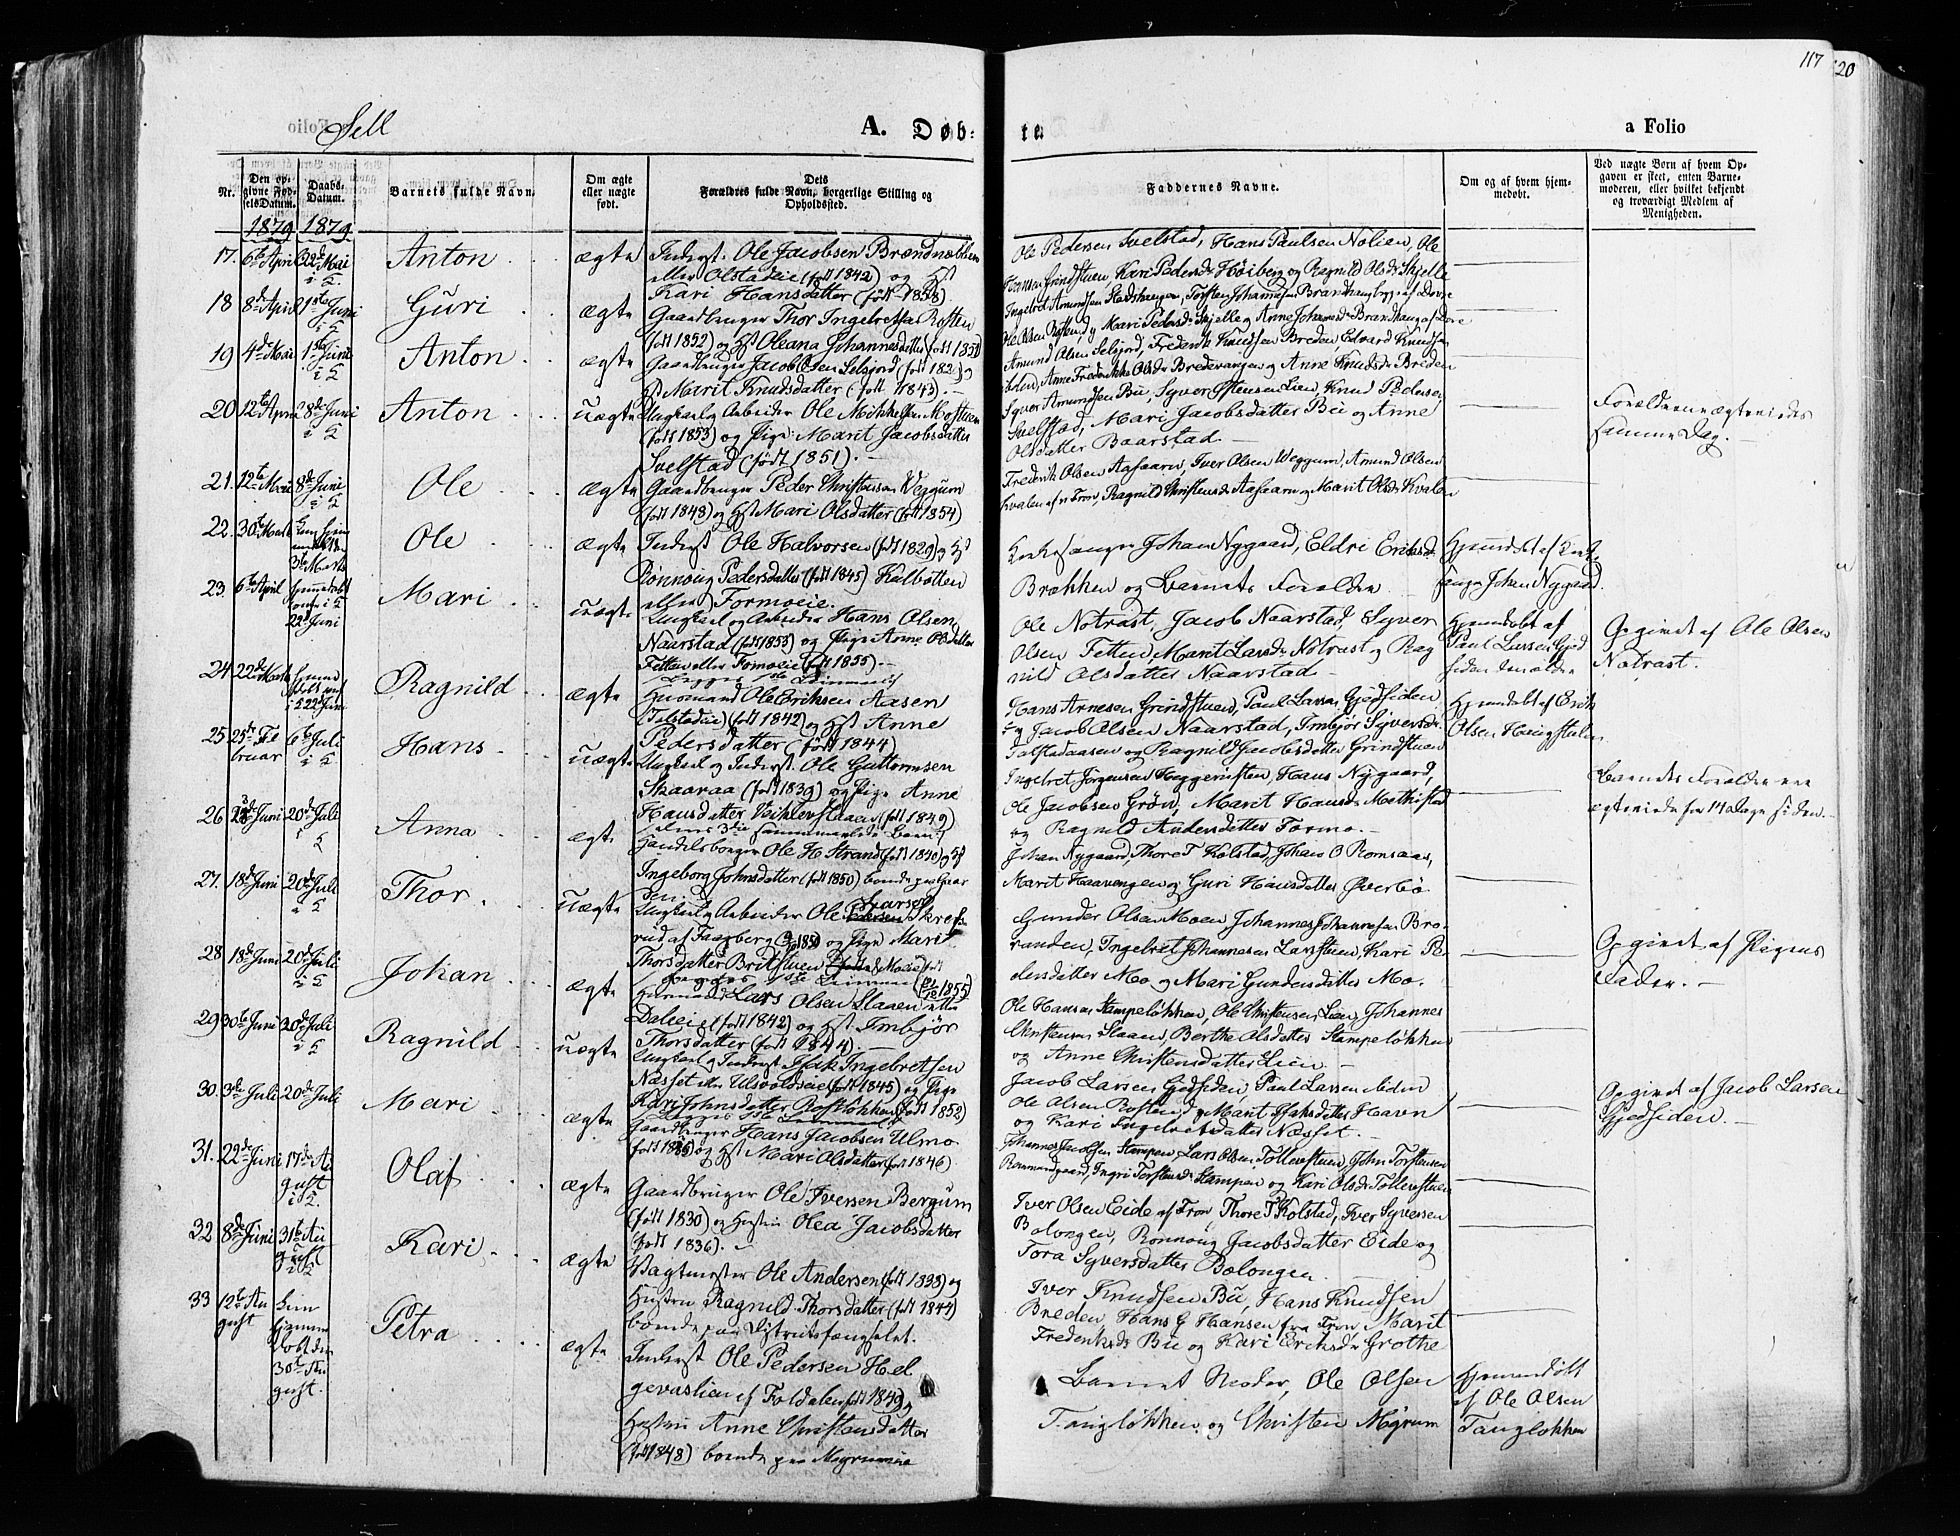 117
20
Sell
A. Døb-
te
a Folio
Nr.
Den opgivne Fødsels Datum.
Daabs-Datum.
Barnets fulde Navn.
Om ægte eller uægte født.
Dets Forældres fulde Navn, borgerlige Stilling og Opholdssted.
Faddernes Navne.
Om og af hvem hjemmedøbt.
Ved uægte Børn af hvem Opgaven er skeet, enten Barnemoderen, eller hvilket bekjendt og troværdigt Medlem af Menigheden.
1879 1879
17. 6te April 22de Mai Anton ægte
Inderst Ole Jacobsen Brændnækken
eller Olstadeie (født 1842) og Hst
Kari Hansdatter (født 1838).
Ole Pedersen Svelstad, Hans Paulsen Nolien, Ole
Kari Pedersd. Høiberg og Ragnild Olsd. Skjelle
18 8de April 1ste Juni Guri ægte
Gaardbruger Thor Ingebretsen Rosten
(født 1852) og Hst Oleana Johannesdatter
Ole Olsen Rosten, Mari Pedersd. Skjelle og Anne Johannesd. Brandhaug af Dovre
19 4de Mai 1ste Juni Anton ægte
Gaardbruger Jacob Olsen Selsjord
Hst Marit Knudsdatter (født 1843).
Amund Olsen Selsjord, Frederik Knudsen Breden, Edvard Knudsen
Anne Frederikke Olsd. Bredevangen og Anne Knudsd. Breden
20 12te April 8de Juni Anton uægte
Ungkarl og Arbeider Ole Mikkelsen Mostuen
(født 1853) og Pige Marit Jacobsdatter
Svelstad (født 1851).
Syver Amundsen Bu, Syver Østensen Lien, Knud Pedersen
Svelstad, Mari Jacobsdatter Bu og Anne
Olsdatter Baarstad.
Forældrene ægteviedes
samme Dag.
21. 12te Mai 8de Juni Ole ægte
Gaardbruger Peder Christensen Veggum
(født 1848) og Hst Mari Olsdatter (født 1854)
Frederik Olsen Aasaaren, Iver Olsen Weggum, Amund Olsen
Kvalen af Fron, Ragnild Christensd. Aasaaren og Marit Olsd. Kvalen
22. 30te Marts Ole ægte
Inderst Ole Halvorsen (født 1829) og Hst
Rønnoug Pedersdatter (født 1845) Kalbotten
eller Formoeie.
Kirkesanger Johan Nygaard, Eldri Eriksd.
Brækken og Barnets Forældre.
Hjemmedøbt af Kirke-
sanger Johan Nygaard.
23. 6te April Hjemmedøbt 22de Juni Mari uægte
Ungkarl og Arbeider Hans Olsen
Naarstad (født 1853) og Pige Anne Olsdatter
Tetten eller Formoeie (født 1855).
Ole Notrast, Jacob Naarstad, Syver
Olsen Tetten, Marit Larsd. Notrast og Rag
nild Olsdatter Naarstad.
Hjemmedøbt af
Paul Larsen Gjed
siden
Opgivet af Ole Olsen
Notrast.
24. 22de Marts Ragnild ægte
Husmand Ole Eriksen Aasen
(Tolstadeie) (født 1842) og Hst Anne
Pedersdatter (født 1844)
Hans Arnesen Grindstuen, Paul Larsen Gjedsiden
og Jacob Olsen Naarstad, Imbjør Syversd.
Tolstadaasen og Ragnild Jacobsdatter Grindstuen
Hjemmedøbt af Erik
Olsen Haugstulen
25 25de Februar 6te Juli Hans uægte
Ungkarl og Inderst Ole Guttormsen
Skaaraa (født 1839) og Pige Anne
Hansdatter (født 1849)
Ingebret Jørgensen Heggeristen, Hans Nygaard,
Ole Jacobsen Grøn, Marit Hansd. Mathistad
og Ragnild Andersdatter Formo.
Barnets Forældre ere
ægteviede for 14 Dage siden.
26 Juni 20de Juli Anna ægte
Handelsborger Ole H. Strand (født 1840) og Hst
Ingeborg Johnsdatter (født 1850)
Johan Nygaard, Thore T. Kolstad, Johan O. Romsaas,
Marit Haavengen og Guri Hansdatter Øverbø
27. 18de Juni 20de Juli Thor uægte
Ungkarl og Arbeider Ole Larsen Skrefs
rud af Faaberg og Pige Mari
Thorsdatter Brustuen
Gunder Olsen Moen, Johannes Johannesen Bro
randen, Ingebret Johannesen Larsstuen, Kari Pe
dersdatter Mo og Mari Gundersdatter Mo.
Opgivet af Pigens
Fader.
28 18de Juni 20de Juli Johan ægte
Husmand Lars Olsen Slaaen
(født 1842) og Hst Imbjør
Thorsdatter (født 1844).
Ole Hansen Stampeløkken, Ole Christensen Lien, Johannes
Christensen Slaaen, Berthe Olsdatter Stampeløkken
og Anne Christensdatter Lien
29 30te Juni 20de Juli Ragnild uægte
Ungkarl og Inderst Isak Ingebretsen
Næsset eller Ulsvoldseie (født 1845) og Pige
Kari Johnsdatter Rostløkken (født 1852)
Jacob Larsen Gjedsiden, Paul Larsen ibidm
Ole Olsen Rosten, Marit Isaksdatter Havn
og Kari Ingebretsdatter Næsset.
Opgivet af Jacob Larsen
Gjedsiden.
30. 3die Juli 20de Juli Mari ægte
Gaardbruger Hans Jacobsen Ulmo
og Hst Mari Olsdatter (født 1846)
Johannes Jacobsen Stampen, Lars Olsen Tollevstuen, John Torstensen
Rommundgaard, Ingri Torstensd. Stampen og Kari Olsd. Tollevstuen
31. 22de Juni 17de August Olaf ægte
Gaardbruger Ole Iversen Bergum
(født 1830) og Hustru Olea Jacobsdatter
født 1836).
Iver Olsen Eide af Fron, Thore T. Kolstad, Iver Syversen
Bolongen, Rønnoug Jacobsdatter Eide og
Tora Syversdatter Bolongen
32 8de Juni 31te August Kari ægte
Vagtmester Ole Andersen (født 1833) og
Hustru Ragnild Thorsdatter (født 1844)
boende paa Distriktsfængselet.
Iver Knudsen Bu, Hans Knudsen
Breden, Hans G. Hansen fra Fron, Marit
Frederiksd. Bu og Kari Eriksd. Grothe
33 12te August hjemmedøbt den 30te August. Petra ægte
Inderst Ole Pedersen Hel
gevaslien af Foldalen født 1849 og
Hustru Anne Christensdatter
(født 1848) boende paa Mygrumeie
Barnet Moder, Ole Olsen
Tangløkken, og Christen Mÿrum
Hjemmedøbt
af Ole Olsen
Tangløkken